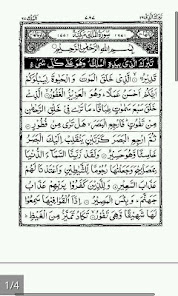 بِسْمِ اللهِ الرَّحْمٰنِ الرَّحِيْمِ
تَبٰرَكَ الَّذِیْ بِیَدِهِ الْمُلْكُ وَهُوَ عَلٰی كُلِّ شَیْءٍ
قَدِیْرُ الَّذِیْ خَلَقَ الْمَوْتَ وَالْحَیٰوةَ لِیَبْلُوَكُمْ
اَیُّكُمْ اَحْسَنُ عَمَلًا وَهُوَ الْعَزِیْزُ الْغَفُوْرُ الَّذِیْ
خَلَقَ سَبْعَ سَمٰوٰتٍ طِبَاقًا مَا تَرٰی فِیْ خَلْقِ الرَّحْمٰنِ
مِنْ تَفٰوُتٍ فَارْجِعِ الْبَصَرَ هَلْ تَرٰی مِنْ فُطُوْرٍ
ثُمَّ ارْجِعِ الْبَصَرَ كَرَّتَیْنِ یَنْقَلِبْ اِلَیْكَ الْبَصَرُ
خَاسِئًا وَّهُوَ حَسِیْرٌ وَلَقَدْ زَیَّنَّا السَّمَآءَ الدُّنْیَا
بِمَصَابِیْحَ وَجَعَلْنٰهَا رُجُوْمًا لِّلشَّیٰطِیْنِ وَاَعْتَدْنَا لَهُمْ
عَذَابَ السَّعِیْرِ وَلِلَّذِیْنَ كَفَرُوْا بِرَبِّهِمْ عَذَابُ
جَهَنَّمَ وَبِئْسَ الْمَصِیْرُ اِذَا اُلْقُوْا فِیْهَا سَمِعُوْا
لَهَا شَهِیْقًا وَّهِیَ تَفُوْرُ تَكَادُ تَمَیَّزُ مِنَ الْغَیْظِ
1/4